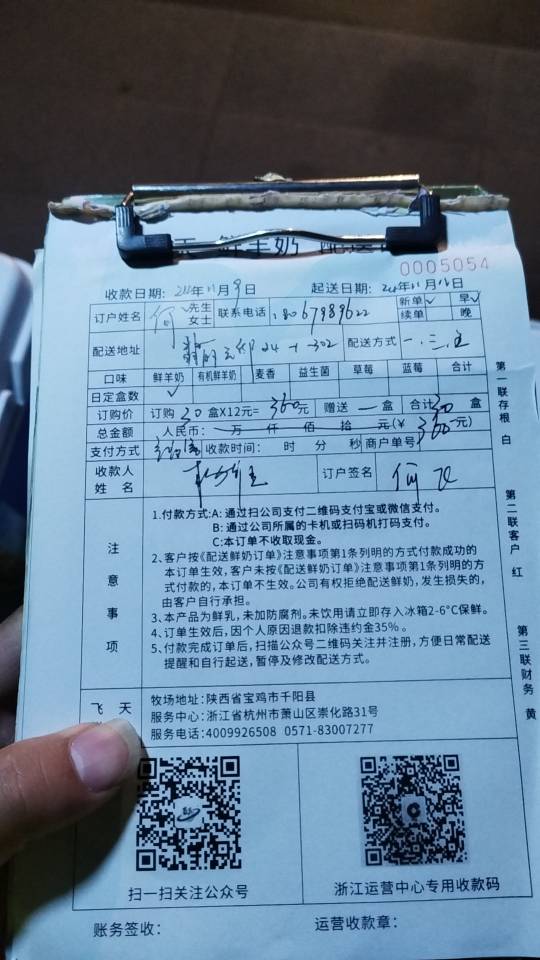 鲜羊奶 配送
0005054
收款日期: 年11月9日 起送日期: 年11月 日
订户姓名 何 先生 女士 联系电话 18067989622 新单✓ 续单 早✓ 晚
配送地址 24-1-302 配送方式 一.三.五
口味 鲜羊奶 有机鲜羊奶 麦香 益生菌 草莓 蓝莓 合计
日定盒数 ✓
订购价 订购 30 盒X12元= 360元 赠送 一 盒 合计30 盒
总金额 人民币: 万 仟 佰 拾 元(¥ 360 元)
支付方式 收款时间: 时 分 秒 商户单号
收款人姓名 订户签名 何
注意事项
1.付款方式:A: 通过扫公司支付二维码支付宝或微信支付。
B: 通过公司所属的卡机或扫码机打码支付。
C:本订单不收取现金。
2、客户按《配送鲜奶订单》注意事项第1条列明的方式付款成功的
本订单生效,客户未按《配送鲜奶订单》注意事项第1条列明的方
式付款的,本订单不生效。公司有权拒绝配送鲜奶,发生损失的,
由客户自行承担。
3、本产品为鲜乳,未加防腐剂。未饮用请立即存入冰箱2-6°C保鲜。
4、订单生效后,因个人原因退款扣除违约金35%。
5、付款完成订单后,扫描公众号二维码关注并注册,方便日常配送
提醒和自行起送,暂停及修改配送方式。
第一联存根 白
第二联客户 红
第三联财务 黄
飞天
牧场地址:陕西省宝鸡市千阳县
服务中心:浙江省杭州市萧山区崇化路31号
服务电话:4009926508 0571-83007277
扫一扫关注公众号
浙江运营中心专用收款码
账务签收: 运营收款章: